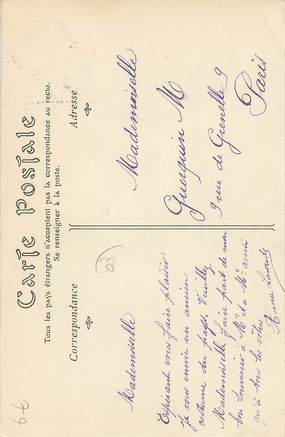 Carte Postale
Tous les pays étrangers n'acceptent pas la correspondance au recto.
Se renseigner à la poste.
Correspondance
Adresse
Mademoiselle
Espérant vous faire plaisir
je vous envoie un ancien
costume du pays. Veuillez
Mademoiselle faire part de mon
bon souvenir à Mr et à Me
qu'à tous les vôtres
Anna
Mademoiselle
Guerquin M
9 rue de Grenelle 9
Paris
03
6€